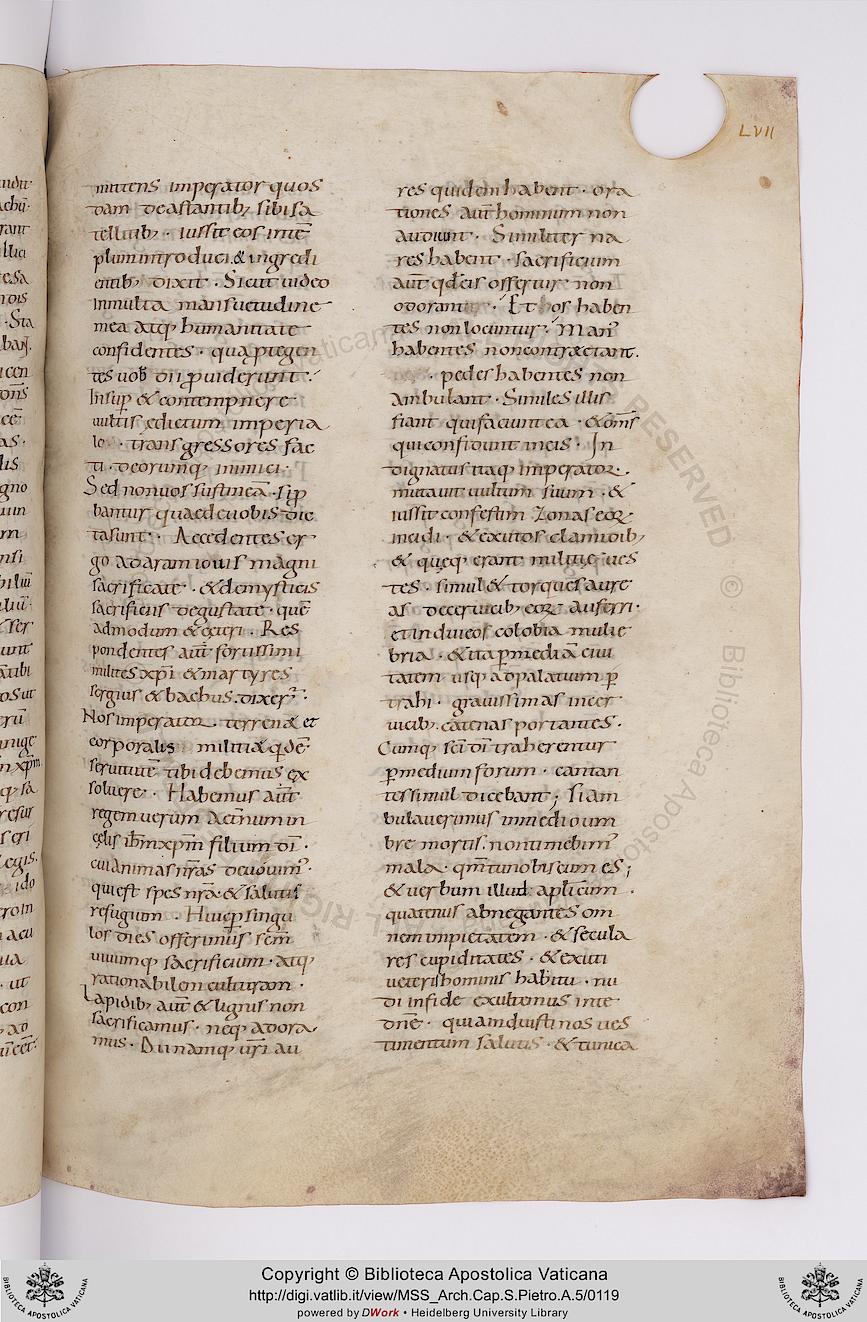 LVII
mittens imperator quos
dam de astantib; sibi sa
tellitib; · iussit eos in te͞
plum introduci. & ingredi
entib; dixit · Sicut video
In multa mansuetudine
mea atq; humanitate
confidentes · qua ꝓtegen
tes uob̄ dii ꝓuiderunt ·
Insup̄ & contempnere
uultis edictum imperia
le · transgressores fac
ti · deorumq; inimici ·
Sed non uos sustineā · si ꝓ
bantur quae de uobis dic
ta sunt · Accedentes er
go ad aram iouis magni
sacrificate · & de mysticis
sacrificiis degustate · que͞
admodum & ceteri · Res
pondentes aut͞ fortissimi
milites xp̄i & martyres
sergius & bachus · dixer̄ ·
Nos imperator · terrenā et
corporalis militiā qde͞
seruitute͞ tibi debemus ex
soluere · Habemus aut͞
regem uerum aet͞num in
cęlis ih̄m xp̄m filium dī ·
cui animas n͞ras deuouim; ·
qui est spes n͞ra · & salutis
refugium · Huic ꝑ singu
los dies offerimus sc͞m
uiuumq; sacrificium · atq;
rationabilem culturam ·
Lapidib; aut͞ & lignis non
sacrificamus · neq; adora
mus · Dii namq; ur͞i au
res quidem habent · ora
tiones aut͞ hominum non
audiunt · Similiter na
res habent · sacrificium
aut͞ qd eis offertur non
odorantur · Et os haben
tes non locuntur · Man;
habentes non contrectant ·
· pedes habentes non
ambulant · Similes illis
fiant qui faciunt ea · & om͞s
qui confidunt in eis · In
dignatus itaq; imperator ·
mutauit uultum suum · &
iussit confestim zonas eoꝝ
incidi · & exutos clamidib;
& queq; erant militię ues
tes · simul & torques aure
as de ceruicib; eoꝝ auferri ·
et indui eos colobia mulie
bria · & ita ꝑ mediā ciui
tatem usq; ad palatium ꝑ
trahi · grauissimas in cer
uicib; catenas portantes ·
Cumq; sc͞i dī traherentur
ꝑ medium forum · cantan
tes simul dicebant; si am
bulauerimus in medio um
bre mortis · non timebim;
mala · qm͞ tu nobiscum es;
& uerbum illud aplicum ·
quatenus abnegantes om
nem impietatem · & secula
res cupiditates · & exuti
ueteris hominis habitu · nu
di in fide exultemus in te
dn͞e · quia induisti nos ues
timentum salutis · & tunica
Copyright © Biblioteca Apostolica Vaticana
http://digi.vatlib.it/view/MSS_Arch.Cap.S.Pietro.A.5/0119
powered by DWork • Heidelberg University Library